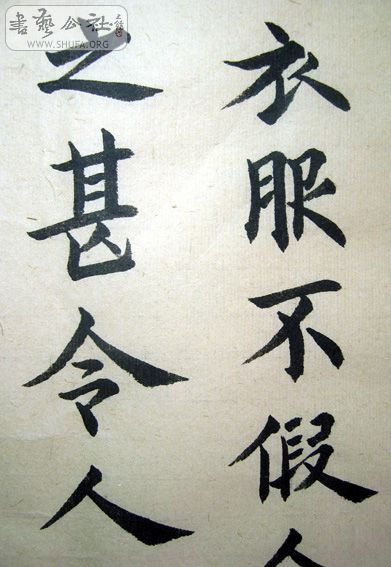 書藝公社
WWW.SHUFA.ORG
衣服不假
之甚令人